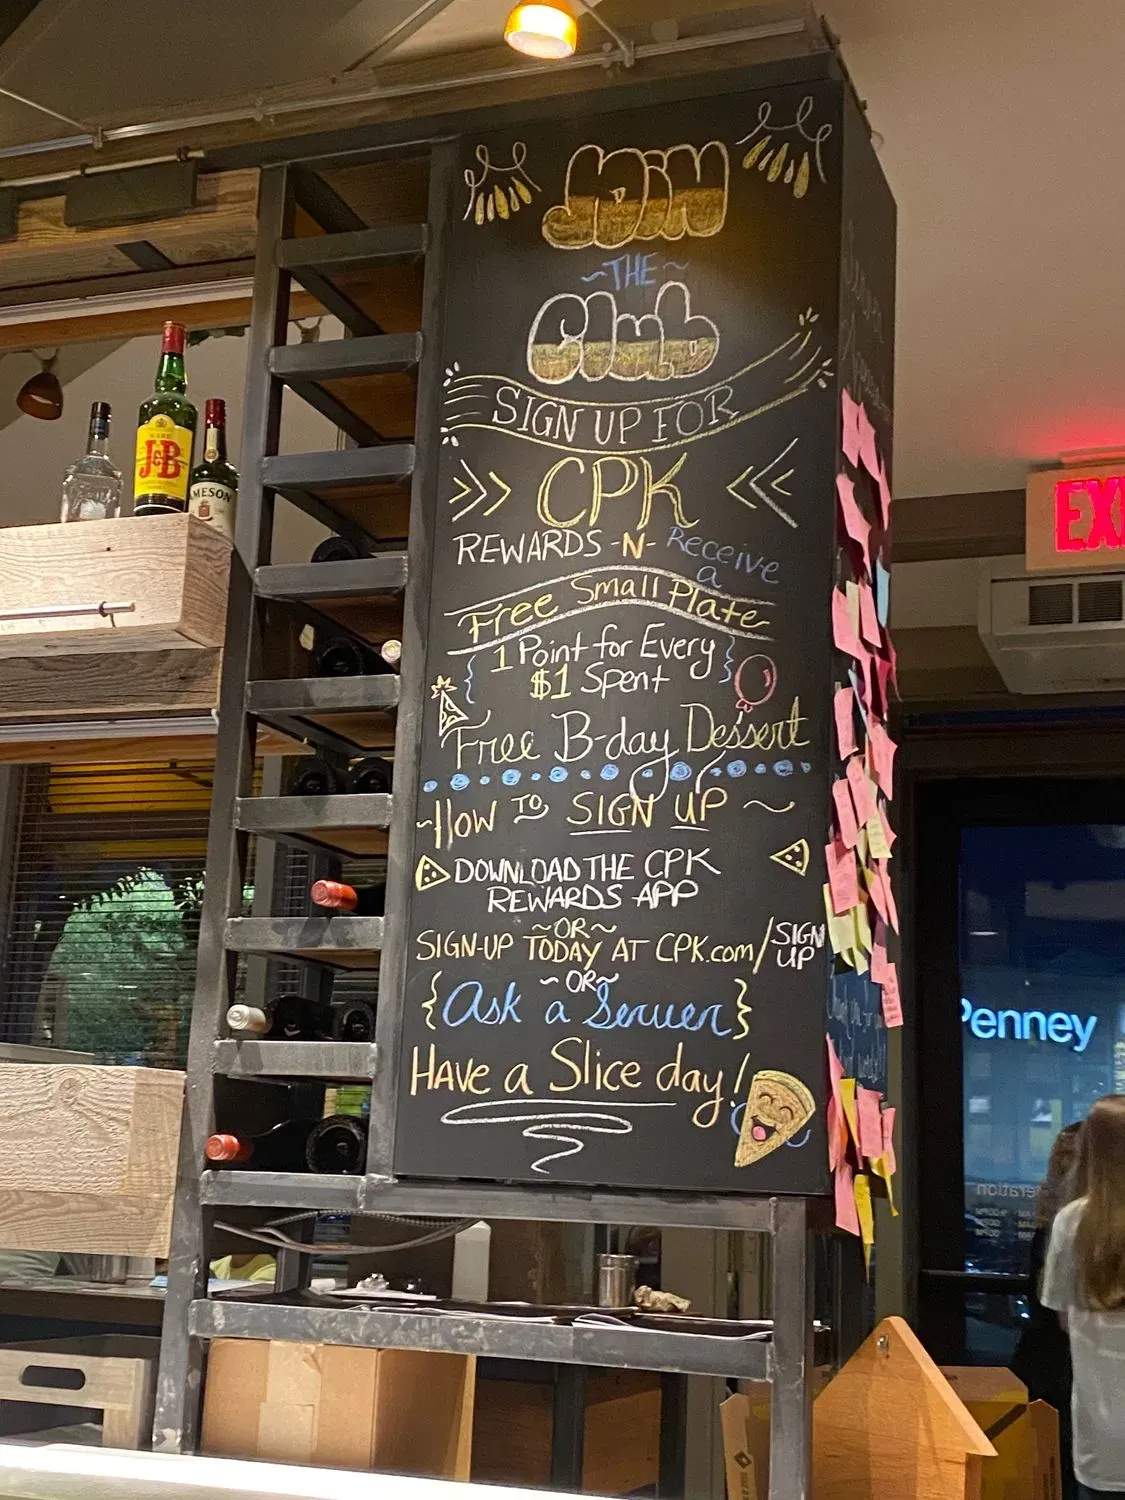 JOIN
~THE~
Club
SIGN UP FOR
CPK
REWARDS -N- Receive
a
Free Small Plate
1 Point for Every
$1 Spent
Free B-day Dessert
~How TO SIGN UP~
DOWNLOAD THE CPK
REWARDS APP
~OR~
SIGN-UP TODAY AT CPK.com/SIGN
UP
~OR~
{Ask a Server}
Have a Slice day!
J&B
MESON
EXI
Penney